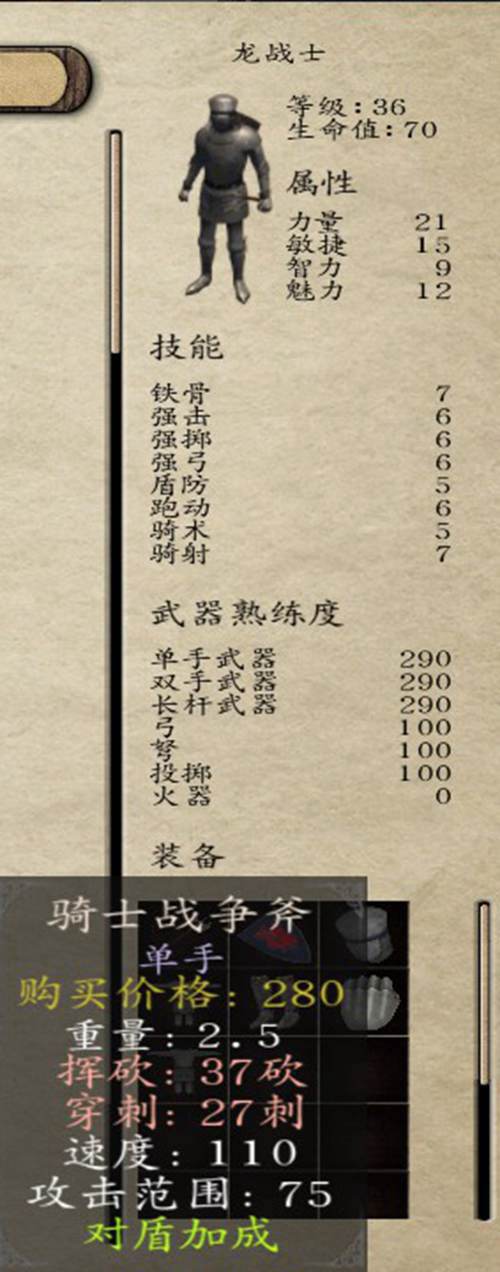 龙战士
等级:36
生命值:70
属性
力量 21
敏捷 15
智力 9
魅力 12
技能
铁骨 7
强击 6
强掷 6
强弓 6
盾防 5
跑动 6
骑术 5
骑射 7
武器熟练度
单手武器 290
双手武器 290
长杆武器 290
弓 100
弩 100
投掷 100
火器 0
装备
骑士战争斧
单手
购买价格:280
重量:2.5
挥砍:37砍
穿刺:27刺
速度:110
攻击范围:75
对盾加成